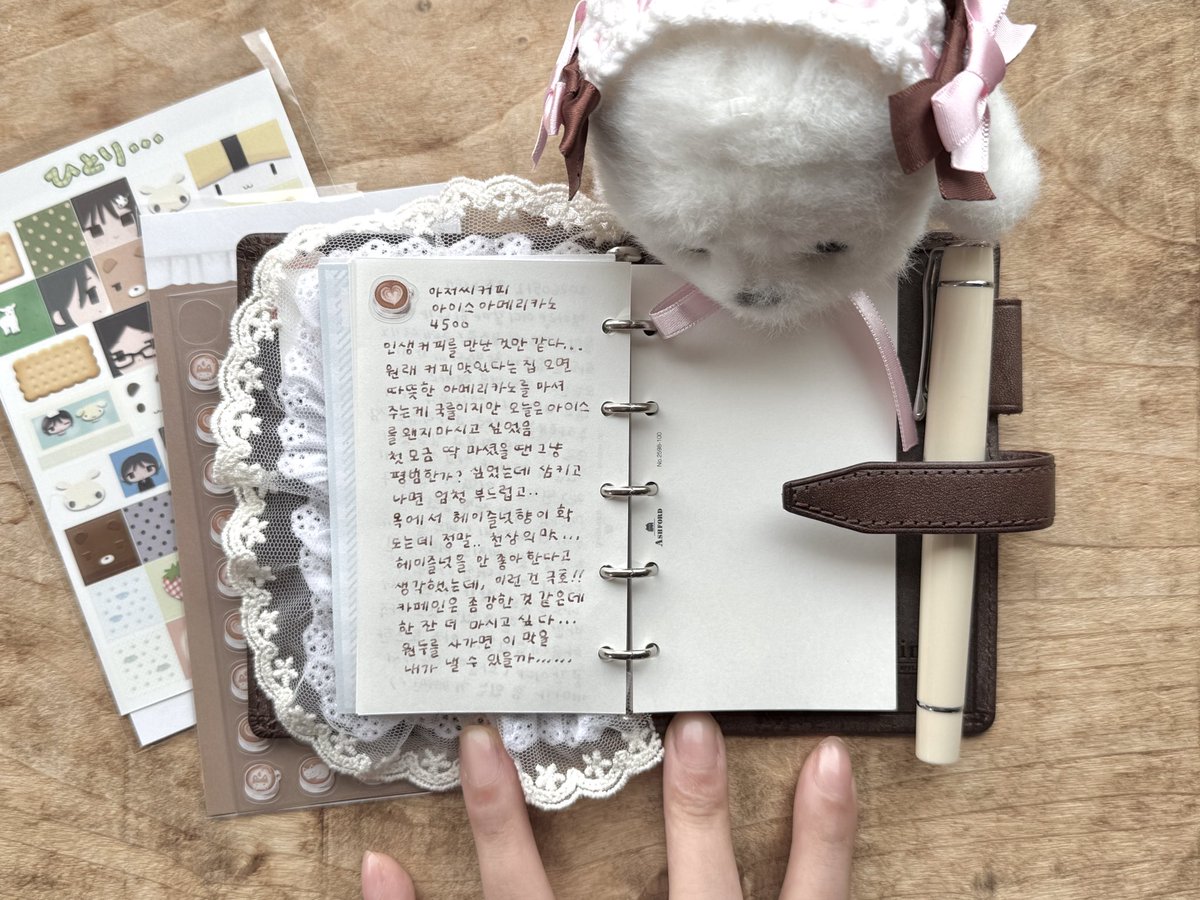 ひとり...
아저씨커피
아이스아메리카노
4500
인생커피를 만난 것만 같다...
원래 커피맛있다는 집 오면
따뜻한 아메리카노를 마셔
주는게 국룰이지만 오늘은 아이스
를 왠지 마시고 싶었음
첫 모금 딱 마셨을 땐 그냥
평범한가? 싶었는데 삼키고
나면 엄청 부드럽고..
목에서 헤이즐넛향이 확
도는데 정말.. 천상의 맛...
헤이즐넛을 안 좋아한다고
생각했는데, 이런 건 극호!!
카페인은 좀 강한 것 같은데
한 잔 더 마시고 싶다...
원두를 사가면 이 맛을
내가 낼 수 있을까......
No.2598-100
ASHFORD